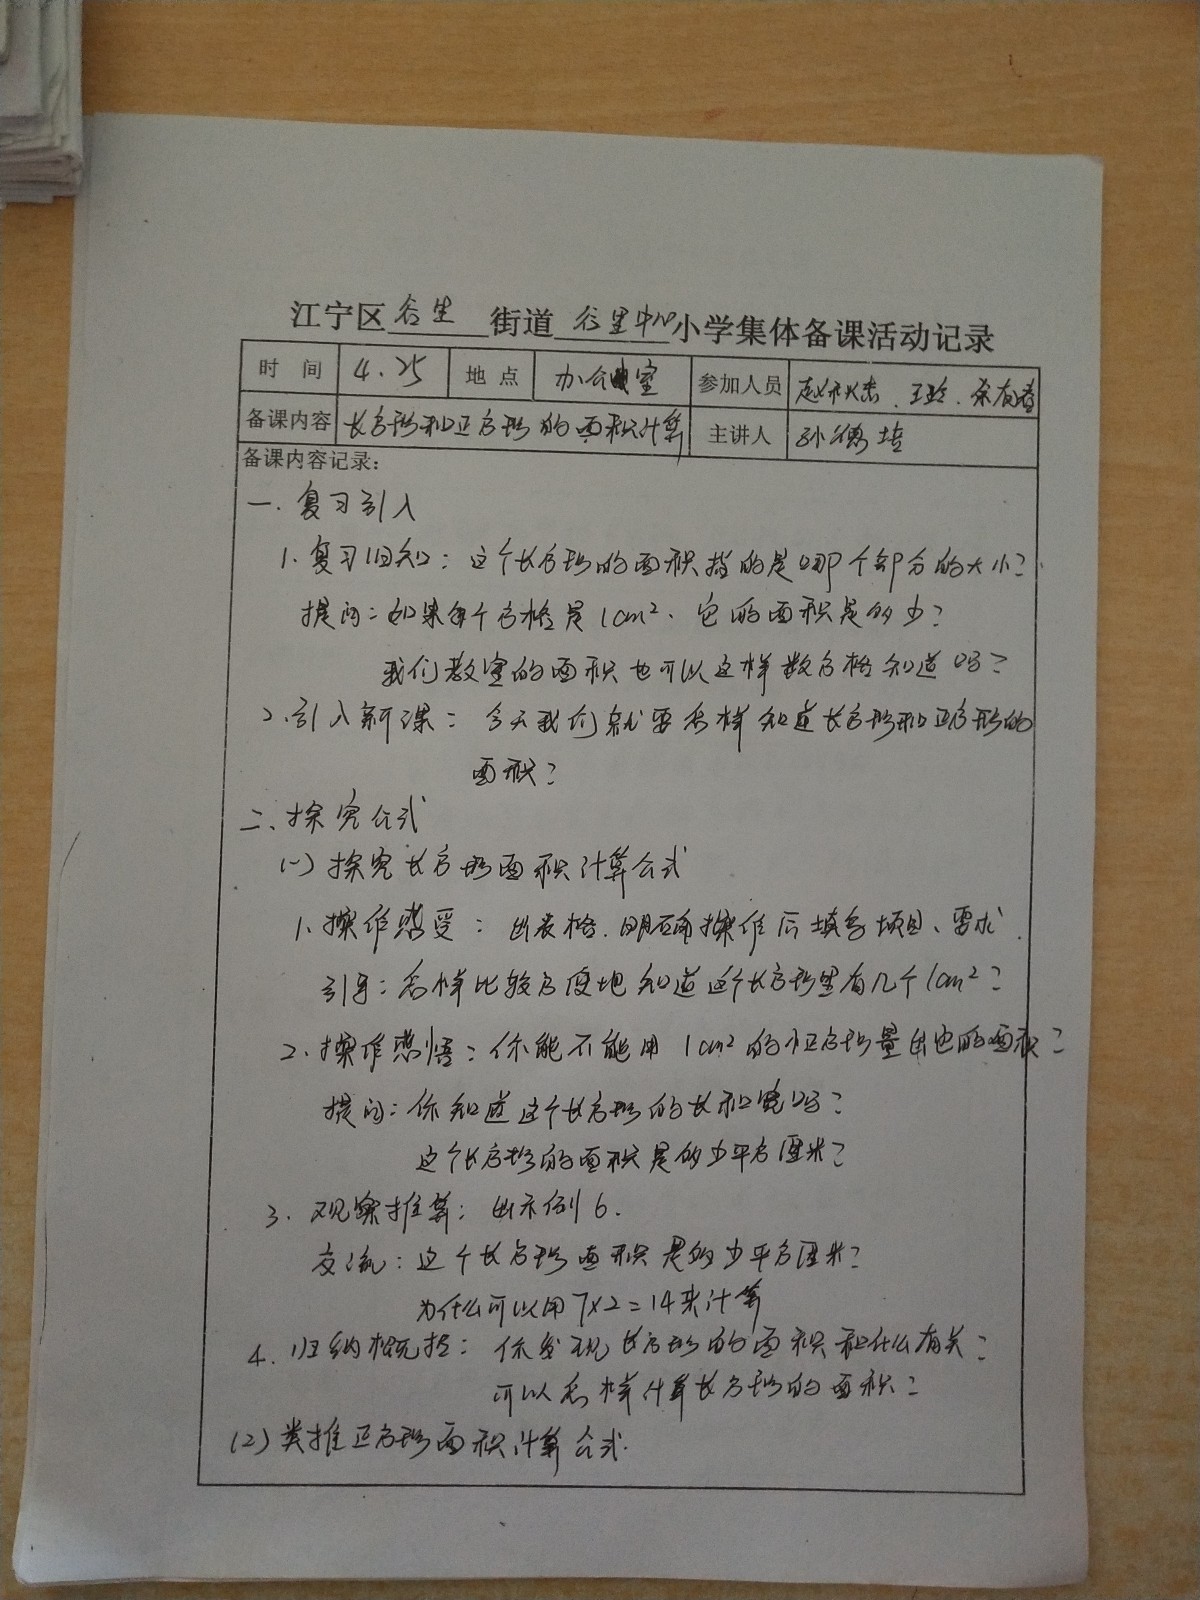 江宁区谷里街道谷里中心小学集体备课活动记录
时 间 4.25 地 点 办公室 参加人员 王玲
备课内容 长方形和正方形的面积计算 主讲人 孙德培
备课内容记录:
一.复习引入
1.复习旧知:这个长方形的面积指的是哪个部分的大小?
提问:如果每个方格是1cm²、它的面积是多少?
我们教室的面积也可以这样数方格知道吗?
2.引入新课:今天我们就要怎样知道长方形和正方形的
面积?
二、探究公式
(一)探究长方形面积计算公式
1、操作感受:出表格.明确操作后填写项目、要求.
引导:怎样比较方便地知道这个长方形里有几个1cm²?
2.操作感悟:你能不能用1cm²的小正方形量出它的面积?
提问:你知道这个长方形的长和宽吗?
这个长方形的面积是多少平方厘米?
3.观察推算:出示例6.
交流:这个长方形面积是多少平方厘米?
为什么可以用7×2=14来计算
4.归纳概括:你发现长方形的面积和什么有关?
可以怎样计算长方形的面积?
(2)类推正方形面积计算公式.